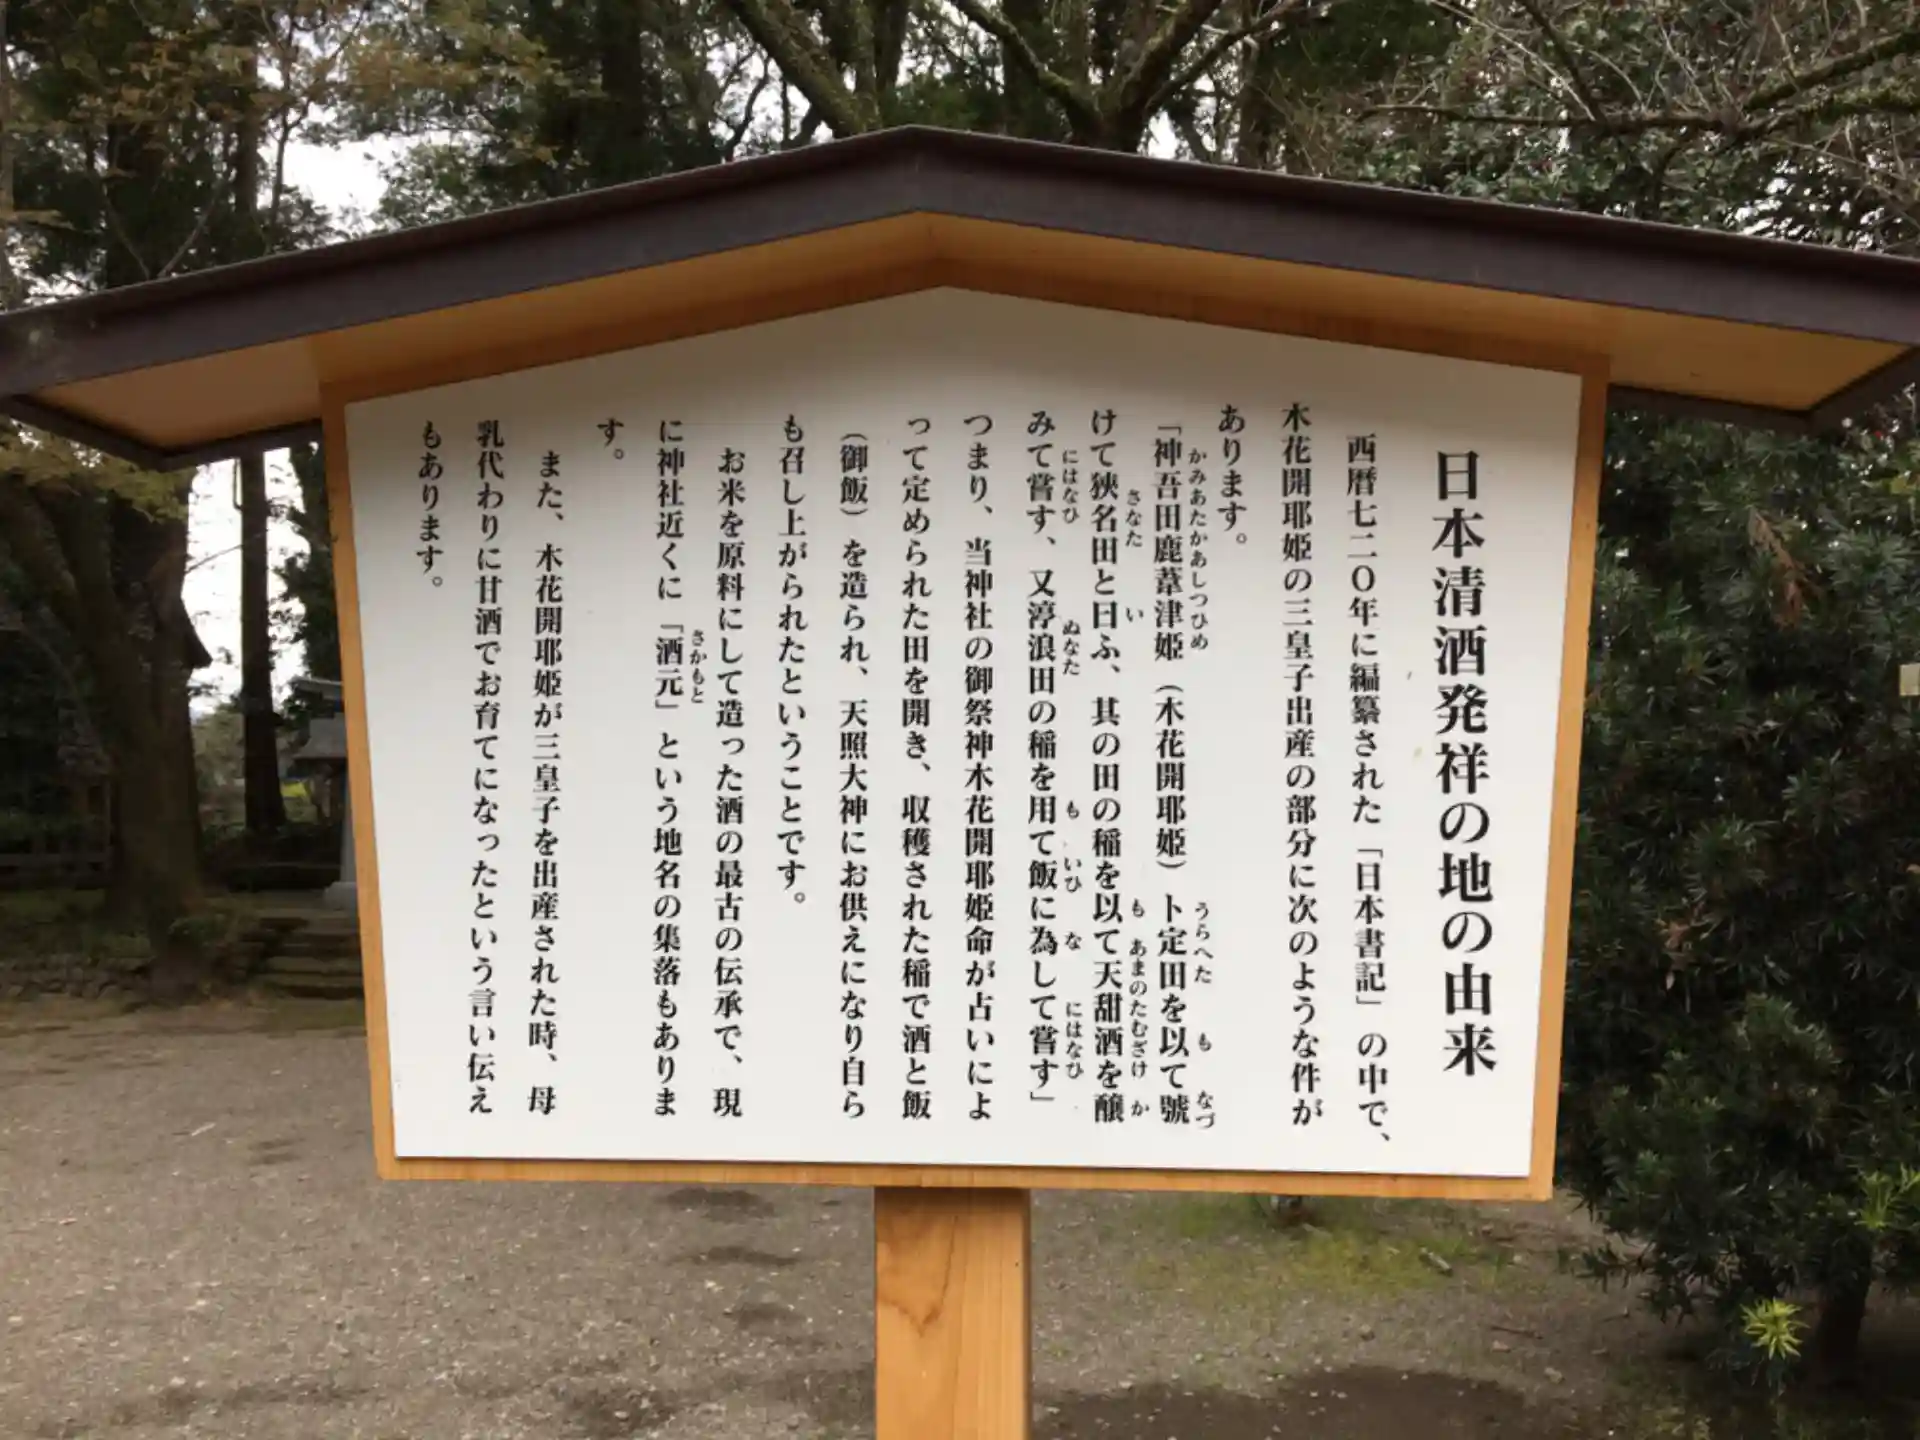 日本清酒発祥の地の由来
西暦七二〇年に編纂された「日本書記」の中で、
木花開耶姫の三皇子出産の部分に次のような件が
あります。
「神吾田鹿葦津姫（木花開耶姫）卜定田を以て號
けて狹名田と曰ふ、其の田の稲を以て天甜酒を醸
みて嘗す、又渟浪田の稲を用て飯に為して嘗す」
つまり、当神社の御祭神木花開耶姫命が占いによ
って定められた田を開き、収穫された稲で酒と飯
（御飯）を造られ、天照大神にお供えになり自ら
も召し上がられたということです。
お米を原料にして造った酒の最古の伝承で、現
に神社近くに「酒元」という地名の集落もありま
す。
また、木花開耶姫が三皇子を出産された時、母
乳代わりに甘酒でお育てになったという言い伝え
もあります。
かみあたかあしつひめ
うらへた
も
なづ
さなた
い
も
あまのたむざけ
か
にはなひ
ぬなた
も
いひ
な
にはなひ
さかもと